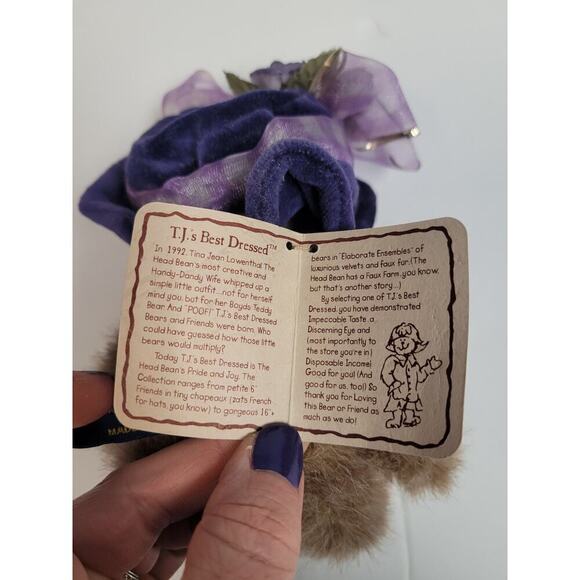 T.J.'s Best Dressed™
In 1992, Tina Jean Lowenthal The
Head Bean's most creative and
Handy-Dandy Wife whipped up a
simple little outfit...not for herself
mind you, but for her Boyds Teddy
Bear. And "POOF!" T.J.'s Best Dressed
Bears and Friends were born. Who
could have guessed how those little
bears would multiply?
Today T.J.'s Best Dressed is The
Head Bean's Pride and Joy. The
Collection ranges from petite 6"
Friends in tiny chapeaz (zat's French
for hats, you know) to gorgeous 16"+
bears in "Elaborate Ensembles" of
luxurious velvets and Faux fur. (The
Head Bean has a Faux Farm, you know,
but that's another story...)
By selecting one of T.J.'s Best
Dressed, you have demonstrated
Impeccable Taste, a
Discerning Eye and
(most importantly to
the store you're in)
Disposable Income!
Good for you! (And
good for us, too!) So
thank you for Loving
this Bear or Friend as
much as we do!
MADE